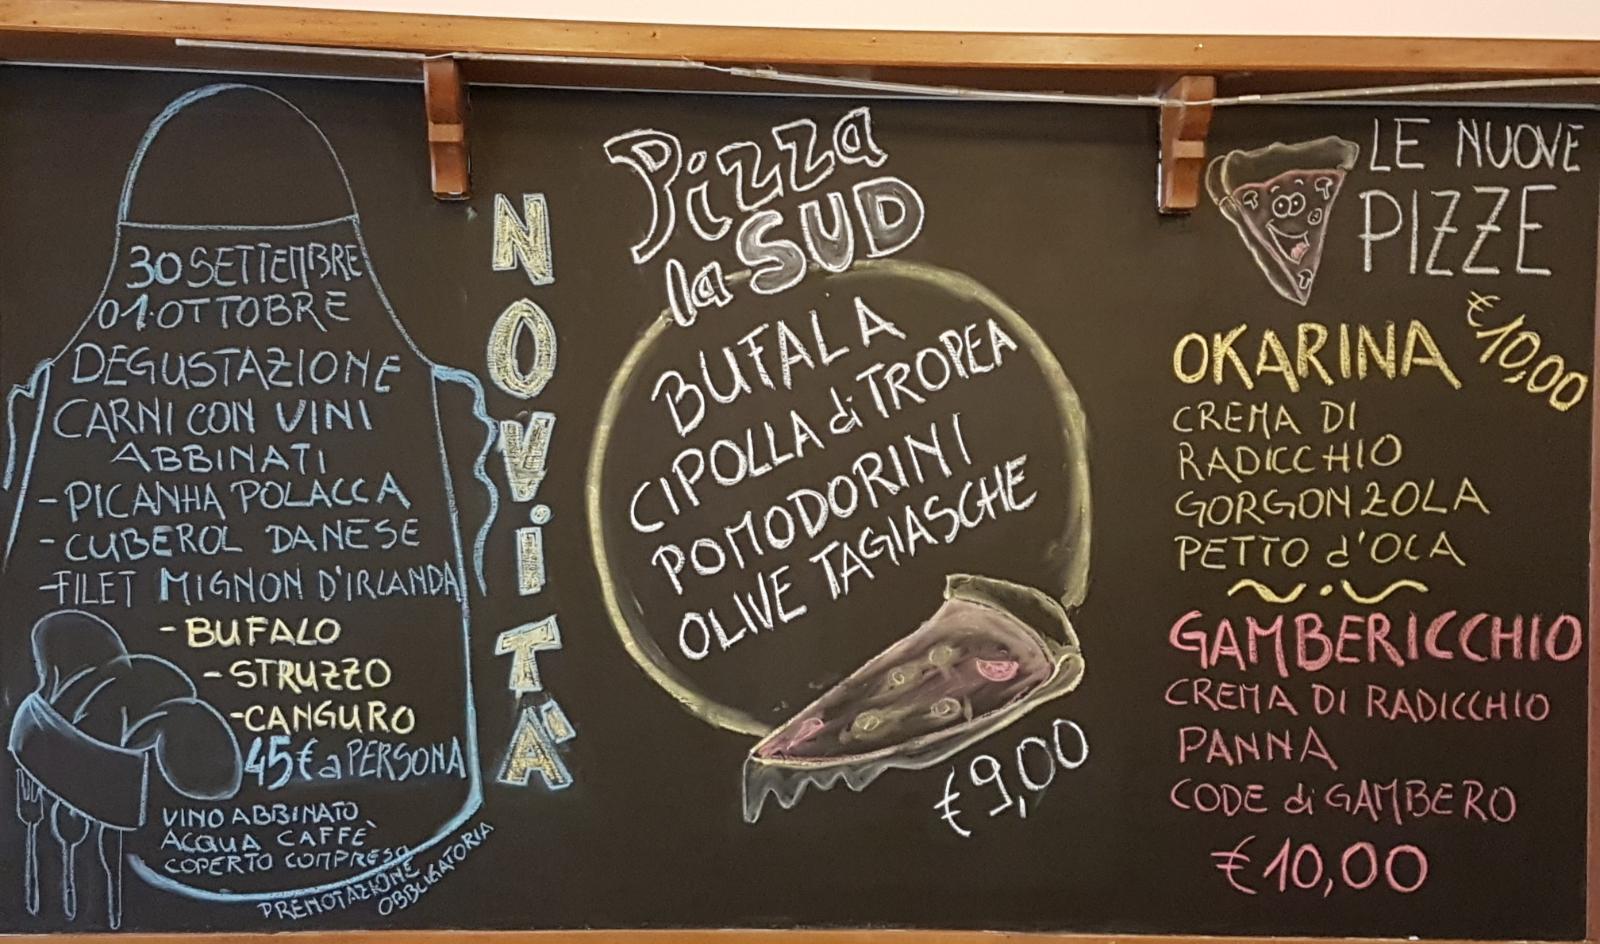 30 SETTEMBRE
01. OTTOBRE
DEGUSTAZIONE
CARNI CON VINI
ABBINATI
- PICANHA POLACCA
- CUBEROL DANESE
- FILET MIGNON D'IRLANDA
- BUFALO
- STRUZZO
- CANGURO
45€ a PERSONA
VINO ABBINATO
ACQUA CAFFÈ
COPERTO COMPRESO
PRENOTAZIONE
OBBLIGATORIA
NOViTA'
Pizza
la SUD
BUFALA
CIPOLLA di TROPEA
POMODORINI
OLIVE TAGIASCHE
€9,00
LE NUOVE
PIZZE
€10,00
OKARINA
CREMA DI
RADICCHIO
GORGONZOLA
PETTO d'OCA
GAMBERICCHIO
CREMA DI RADICCHIO
PANNA
CODE di GAMBERO
€10,00